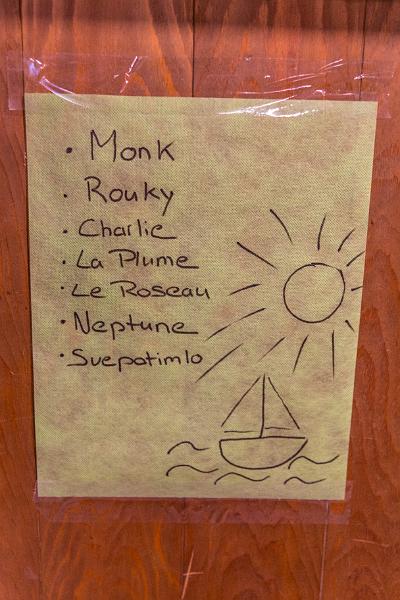 • Monk
• Rouky
• Charlie
• La Plume
• Le Roseau
• Neptune
• Suepatimlo